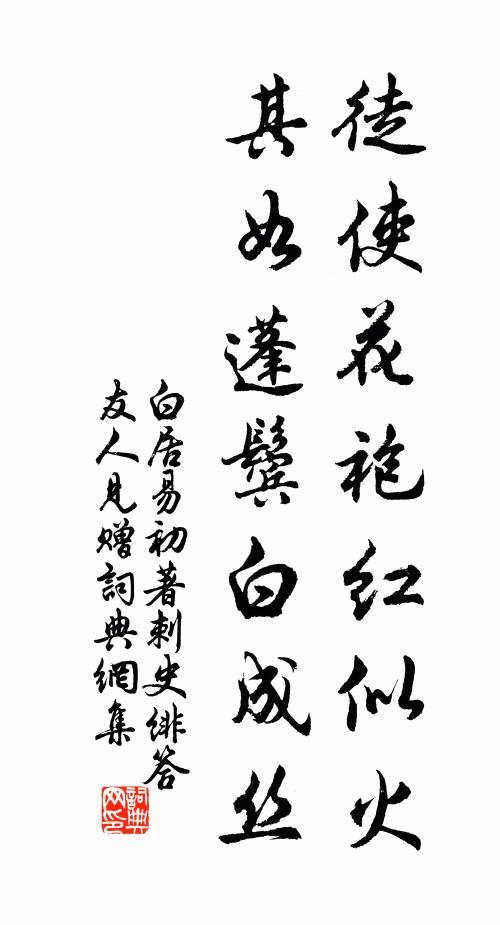 徒使花袍红似火
其如蓬鬓白成丝
白居易初著刺史绯答
友人見赠詞典網集
詞典
网印